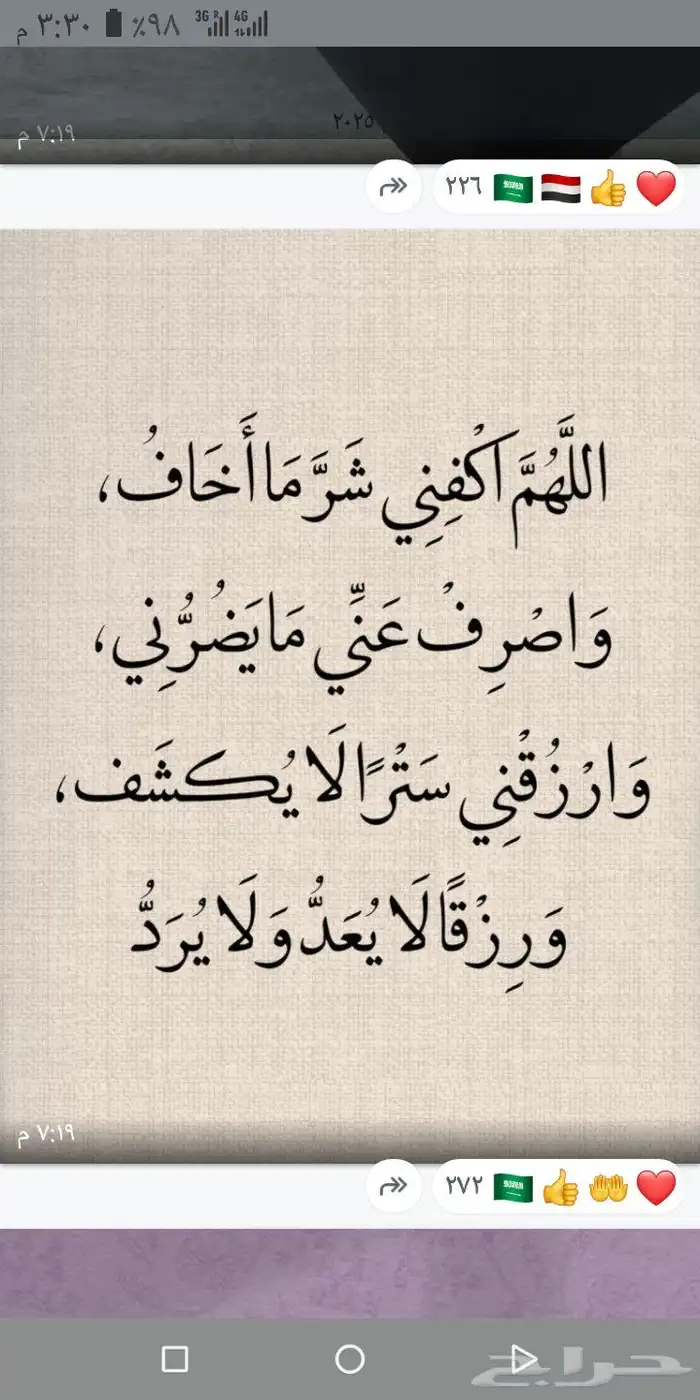 ٣:٣٠ م ٩٨٪ 3G R 4G
٢٠٢٥
٧:١٩ م
٢٢٦
اللَّهُمَّ اكْفِنِي شَرَّ مَا أَخَافُ،
وَاصْرِفْ عَنِّي مَا يَضُرُّنِي،
وَارْزُقْنِي سَتْرًا لَا يُكشَف،
وَرِزْقًا لَا يُعَدُّ وَلَا يُرَدُّ
٧:١٩ م
٢٧٢
حراج